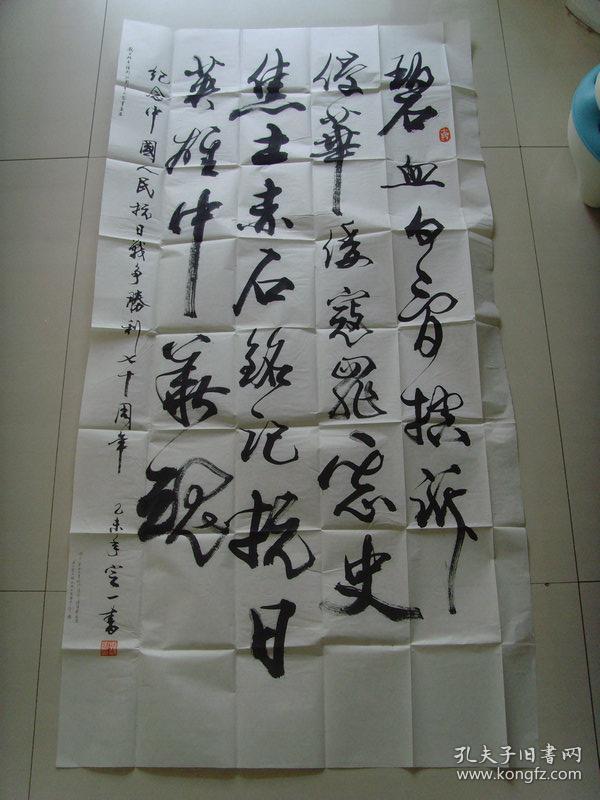 碧血白骨控訴
侵華倭寇罪惡史
焦土赤石銘记抗日
英雄中華魂
纪念中國人民抗日戰争勝利七十周年 乙未年 定一書
孔夫子旧書网
www.kongfz.com